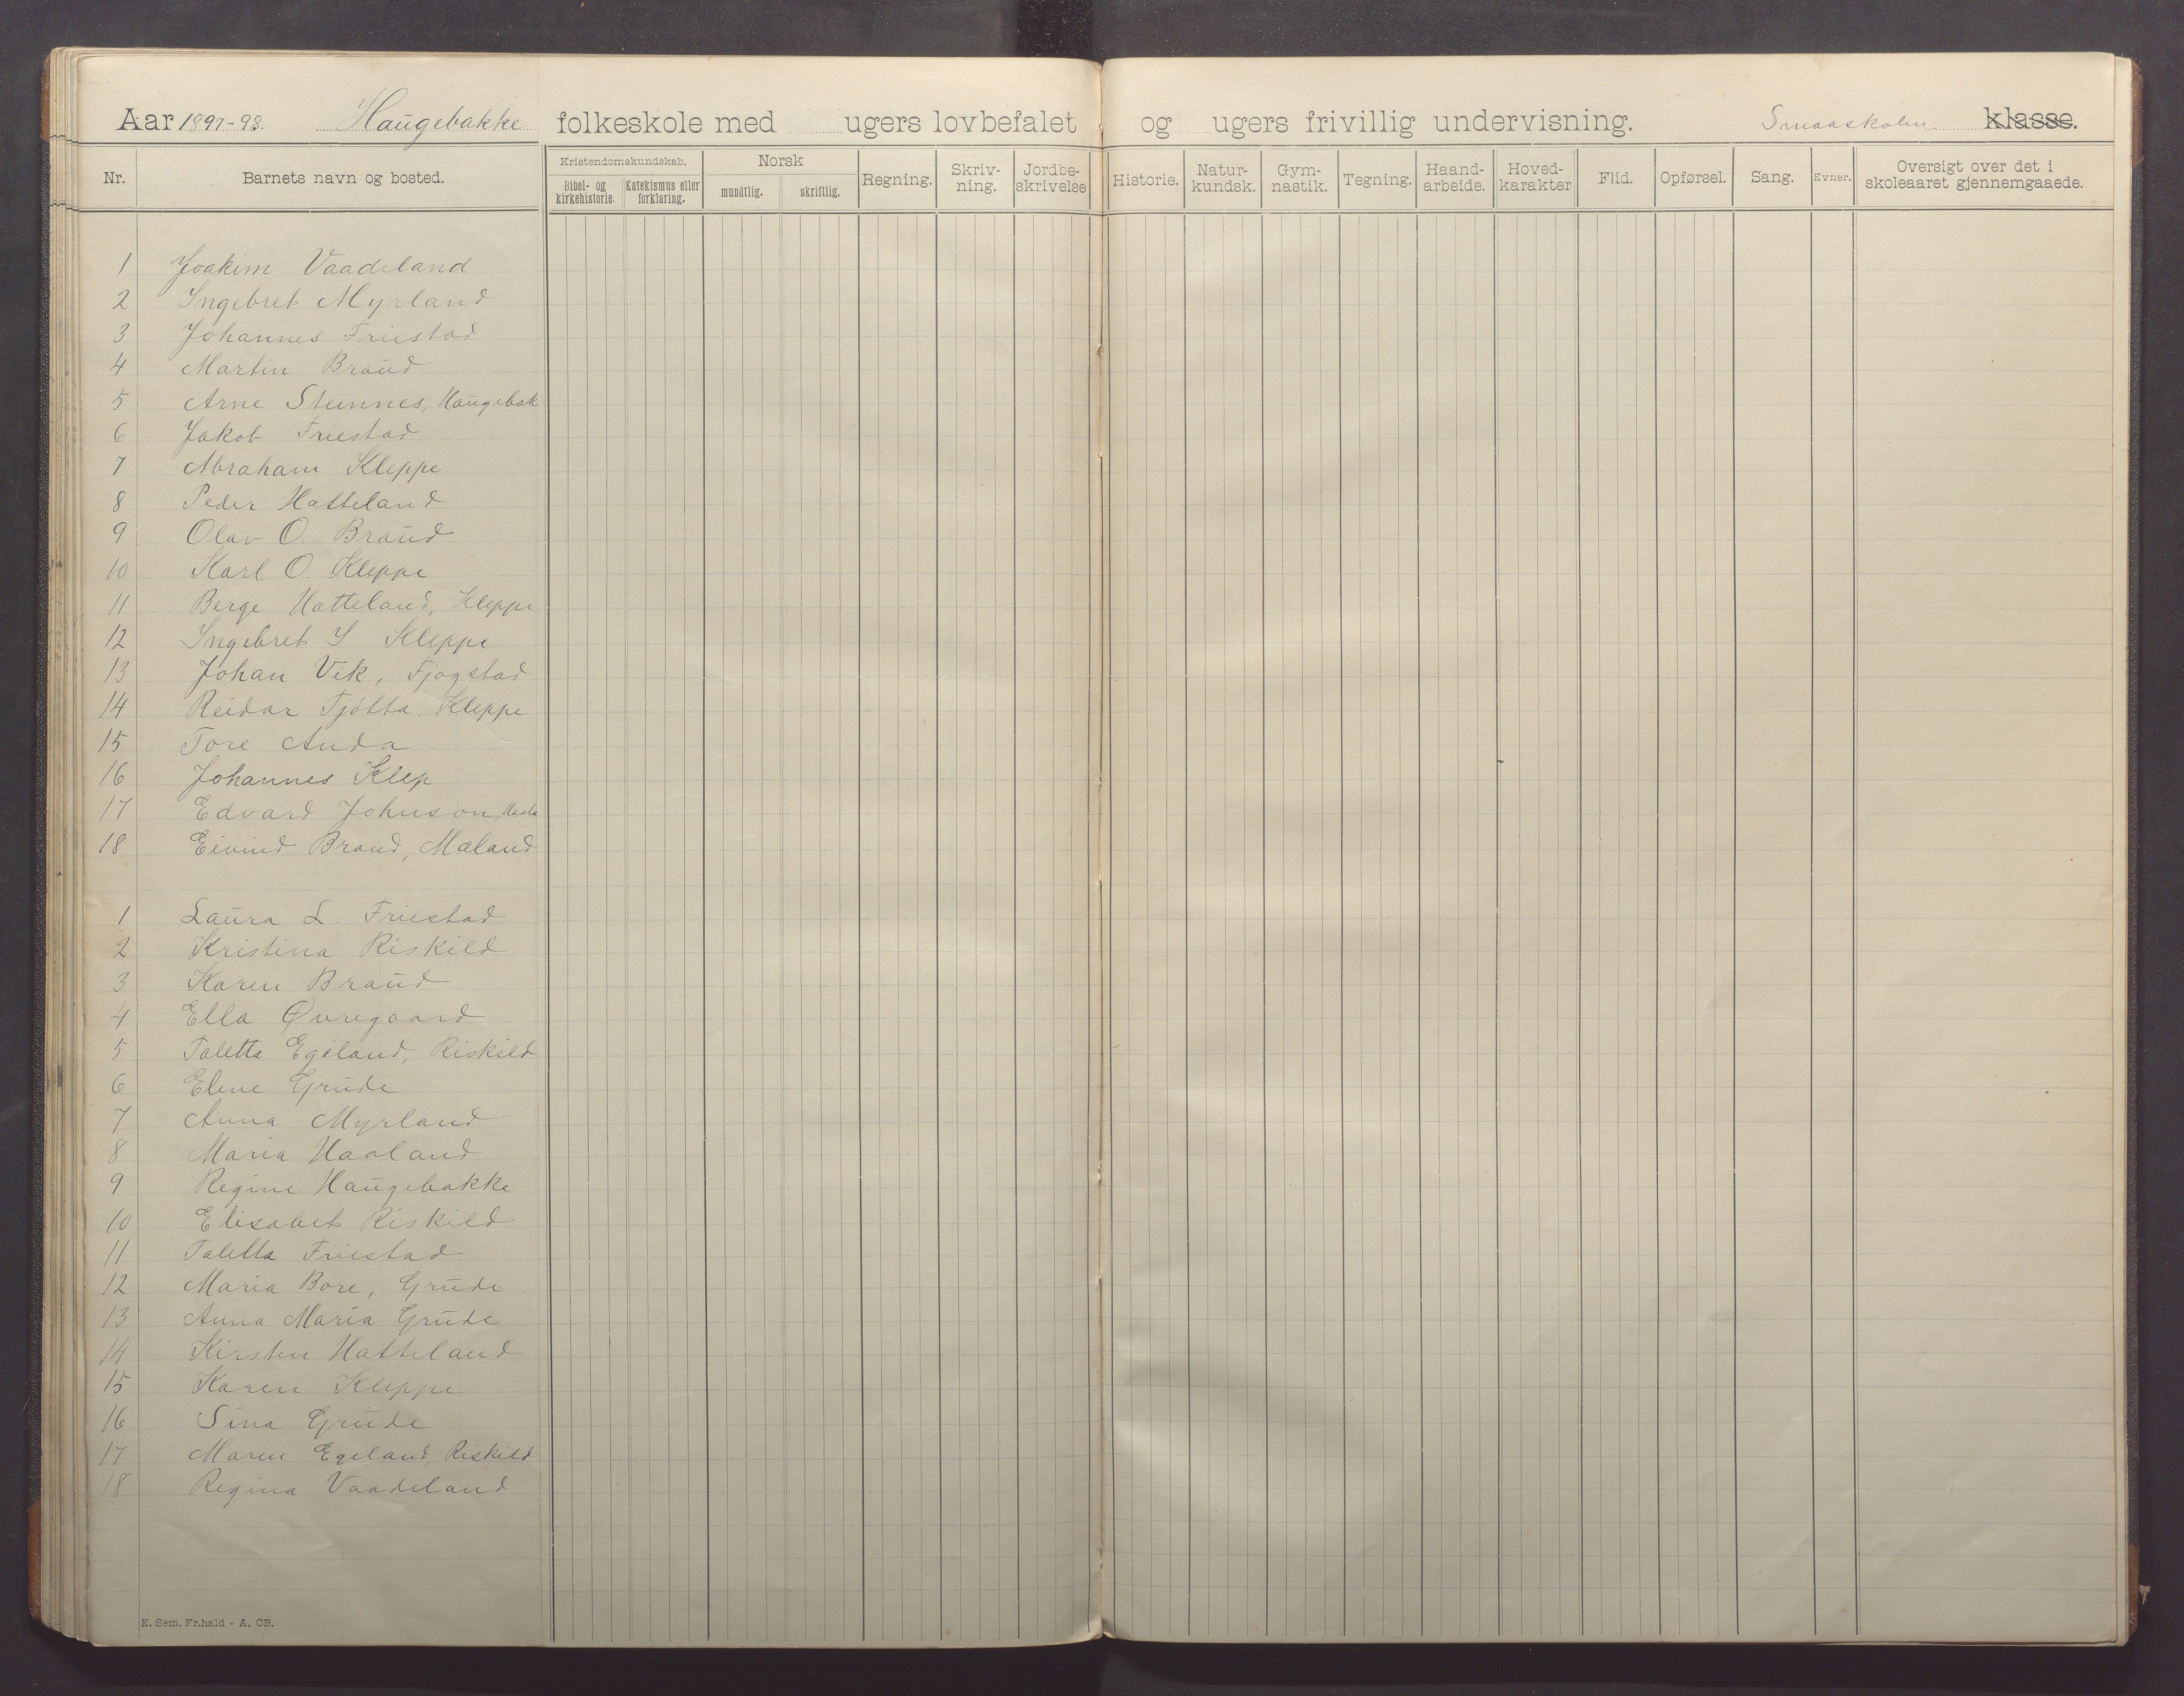 Aar 1897-98. Haugebakke folkeskole med ugers lovbefalet og ugers frivillig undervisning. Smaaskolen klasse.
Nr. Barnets navn og bosted. Kristendomskundskab. Bibel- og kirkehistorie. Katekismus eller forklaring. Norsk mundtlig. skriftlig. Regning. Skriv-ning. Jordbe-skrivelse Historie. Natur-kundsk. Gym-nastik. Tegning. Haand-arbeide. Hoved-karakter Flid. Opførsel. Sang. Evner. Oversigt over det i skoleaaret gjennemgaaede.
1 Joakim Vaadeland
2 Ingebret Myrland
3 Johannes Friestad
4 Martin Braud
5 Arne Steinnes, Haugebak
6 Jakob Friestad
7 Abraham Kleppe
8 Peder Hatteland
9 Olav O. Braud
10 Karl O. Kleppe
11 Berge Hatteland, Kleppe
12 Ingebret I Kleppe
13 Johan Vik, Fjogstad
14 Reidar Tjøtta, Kleppe
15 Tore Anda
16 Johannes Klep
17 Edvard Johnson, Haala
18 Eivind Braud, Mæland
1 Laura L. Friestad
2 Kristina Riskild
3 Karen Braud
4 Ella Øvregaard
5 Taletta Egeland, Riskild
6 Eline Grude
7 Anna Myrland
8 Maria Haaland
9 Regine Haugebakke
10 Elisabet Riskild
11 Taletta Friestad
12 Maria Bore, Grude
13 Anna Maria Grude
14 Kirsten Hatteland
15 Karen Kleppe
16 Sina Grude
17 Maren Egeland, Riskild
18 Regina Vaadeland
E. Sem. Fr.hald - A. CB.